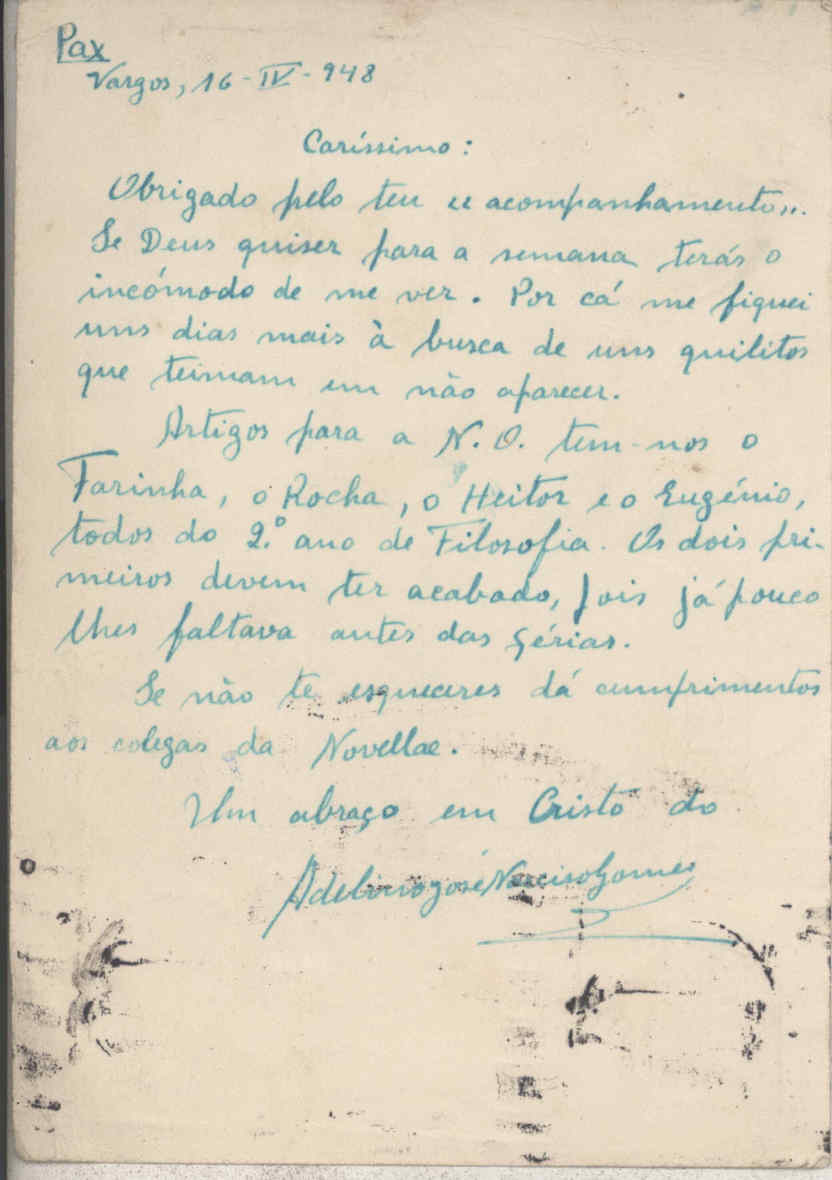 Pax
Vargos, 16-IV-948
Caríssimo:
Obrigado pelo teu "acompanhamento".
Se Deus quiser para a semana terás o
incómodo de me ver. Por cá me fiquei
uns dias mais à busca de uns quilitos
que teimam em não aparecer.
Artigos para a N.O. tem-nos o
Farinha, o Rocha, o Heitor e o Eugénio,
todos do 2.º ano de Filosofia. Os dois pri-
meiros devem ter acabado, pois já pouco
lhes faltava antes das férias.
Se não te esqueceres dá cumprimentos
aos colegas da Novellae.
Um abraço em Cristo do
Adelino José Narciso Gomes